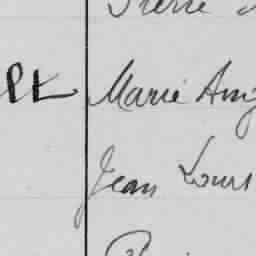 Pierre
PL Marie Ang
Jean Louis